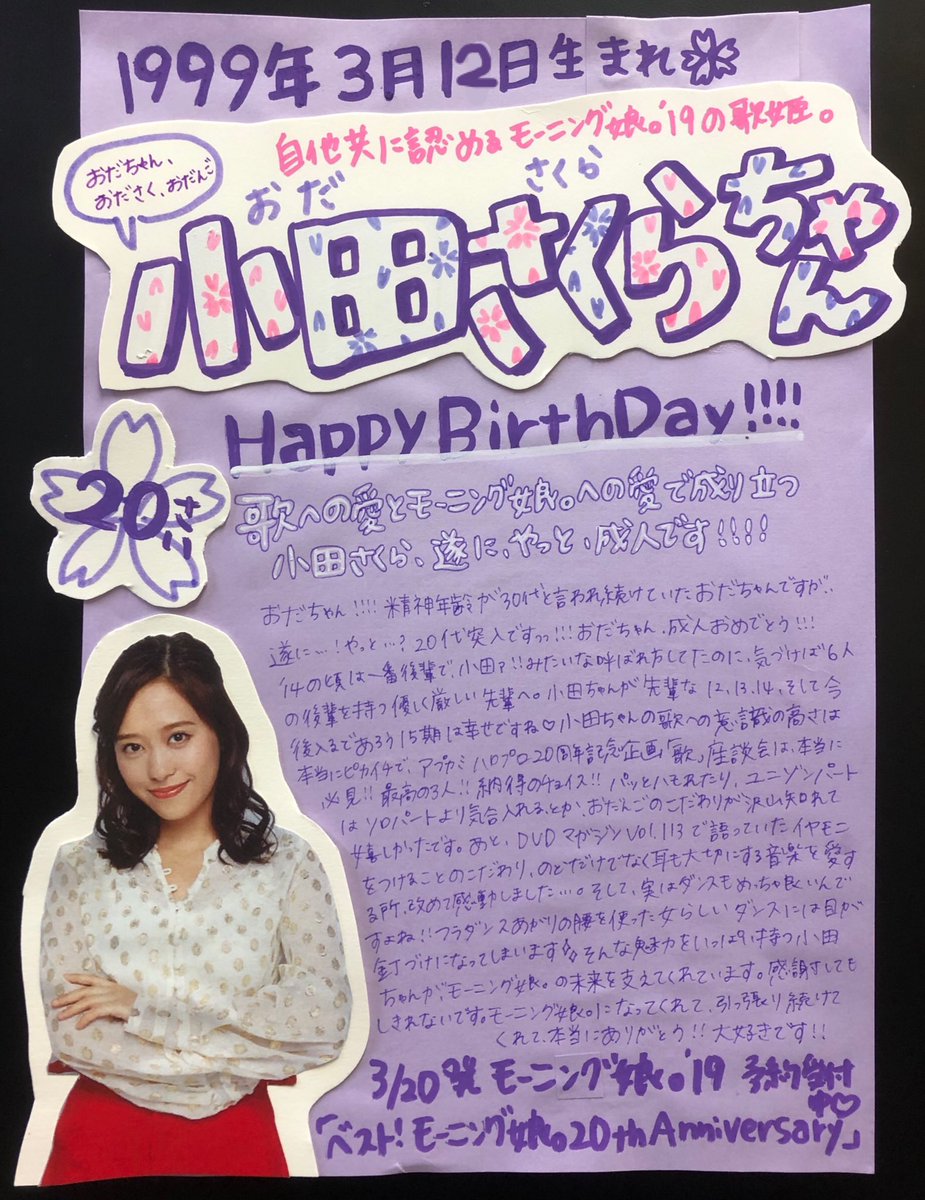 1999年3月12日生まれ
自他共に認めるモーニング娘。'19の歌姫。
おだちゃん、
おださく、おだんご
おだ さくら
小田さくらちゃん
Happy BirthDay!!!!
20さい
歌への愛とモーニング娘。への愛で成り立つ
小田さくら、遂に、やっと、成人です!!!!
おだちゃん!!!!精神年齢が30代と言われ続けていたおだちゃんですが、
遂に…!やっと…?20代突入ですっっ!!!おだちゃん、成人おめでとう!!!
'14の頃は一番後輩で、小田ァ!!みたいな呼ばれ方してたのに、気づけば6人
の後輩を持つ優しく厳しい先輩へ。小田ちゃんが先輩な12,13,14、そして今
後入るであろう15期は幸せですね♡小田ちゃんの歌への意識の高さは
本当にピカイチで、アプカミハロプロ20周年記念企画「歌」座談会は、本当に
必見!!最高の3人!!納得のチョイス!!パッとハモれたり、ユニゾンパート
はソロパートより気合入れるとか、おだんごのこだわりが沢山知れて
嬉しかったです。あと、DVDマガジンVol.113で語っていたイヤモニ
をつけることのこだわり、のどだけでなく耳も大切にする音楽を愛す
る所、改めて感動しました…。そして、実はダンスもめっちゃ良いんで
すよね!!フラダンスあがりの腰を使った女らしいダンスには目が
釘づけになってしまいます そんな魅力をいっぱい持つ小田
ちゃんが、モーニング娘。の未来を支えてくれています。感謝しても
しきれないです。モーニング娘。になってくれて、引っ張り続けて
くれて、本当にありがとう!!大好きです!!
3/20発 モーニング娘。'19 予約受付
中♡
「ベスト!モーニング娘。20th Anniversary」